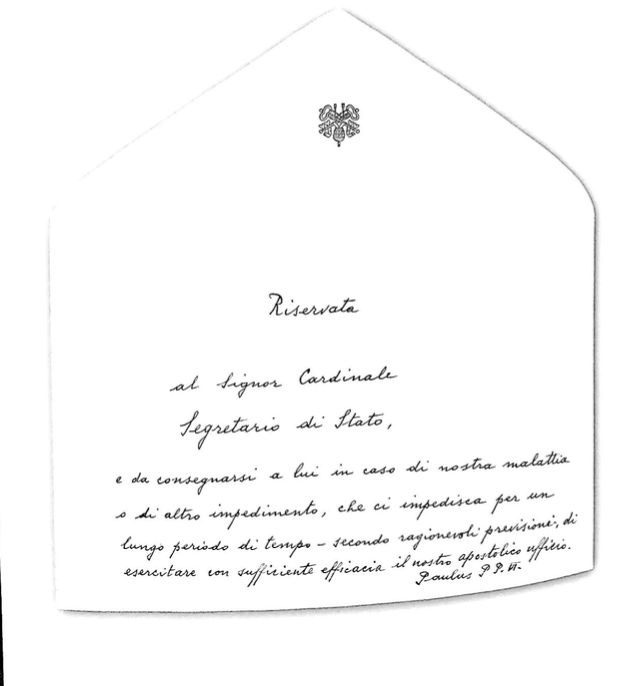 Riservata
al Signor Cardinale
Segretario di Stato,
e da consegnarsi a lui in caso di nostra malattia
o di altro impedimento, che ci impedisca per un
lungo periodo di tempo - secondo ragionevoli previsioni, di
esercitare con sufficiente efficacia il nostro apostolico ufficio.
Paulus PP. VI.